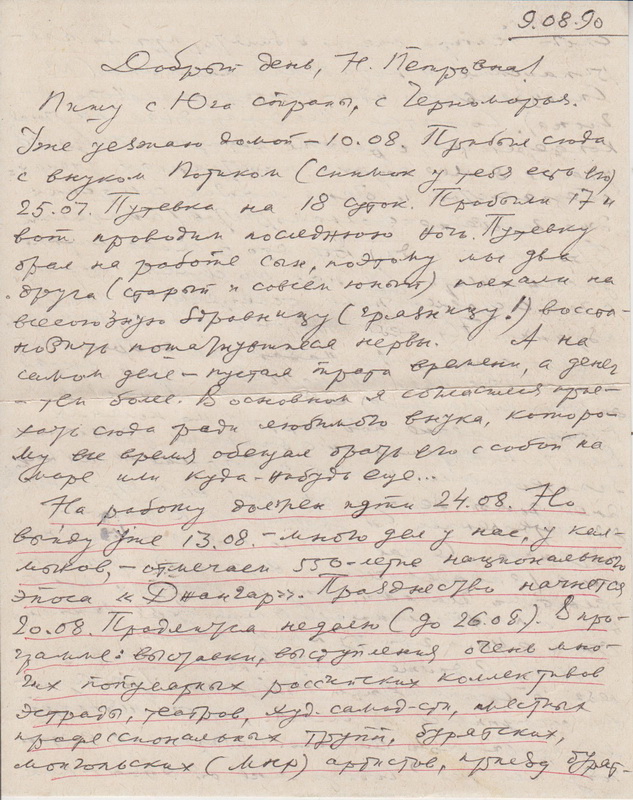 9.08.90
Добрый день, Н. Петровна!
Пишу с Юга страны, с Черноморья.
Уже уезжаю домой – 10.08. Прибыл сюда
с внуком (снимок у тебя есть его)
25.07. Путевка на 18 суток. Пробыли 17 и
вот проводим последнюю ночь. Путевку
брал на работе сын, поэтому мы два
друга (старый и совсем юный) поехали на
всесоюзную здравницу (грязницу!) восста-
новить пошатнувшиеся нервы. А на
самом деле – пустая трата времени, а денег
– тем более. В основном я согласился прие-
хать сюда ради любимого внука, которо-
му все время обещал брать его с собой на
море или куда-нибудь еще...
На работу должен идти 24.08. Но
выйду уже 13.08. – много дел у нас, у кал-
мыков, – отмечаем 550-летие национального
эпоса „Джангар». Празднество начнется
20.08. Продлится неделю (до 26.08). В про-
грамме: выставки, выступления очень мно-
гих популярных российских коллективов
эстрады, театров, худ. самод-сти, местных
профессиональных групп, бурятских,
монгольских (МНР) артистов, приезд бурят-